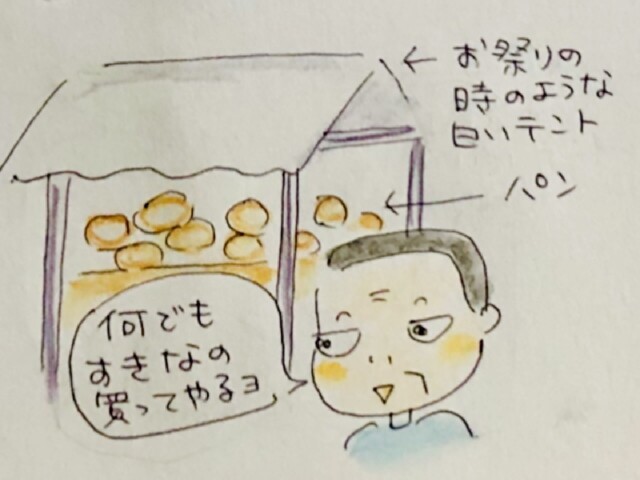 お祭りの
時のような
白いテント
パン
何でも
すきなの
買ってやるヨ